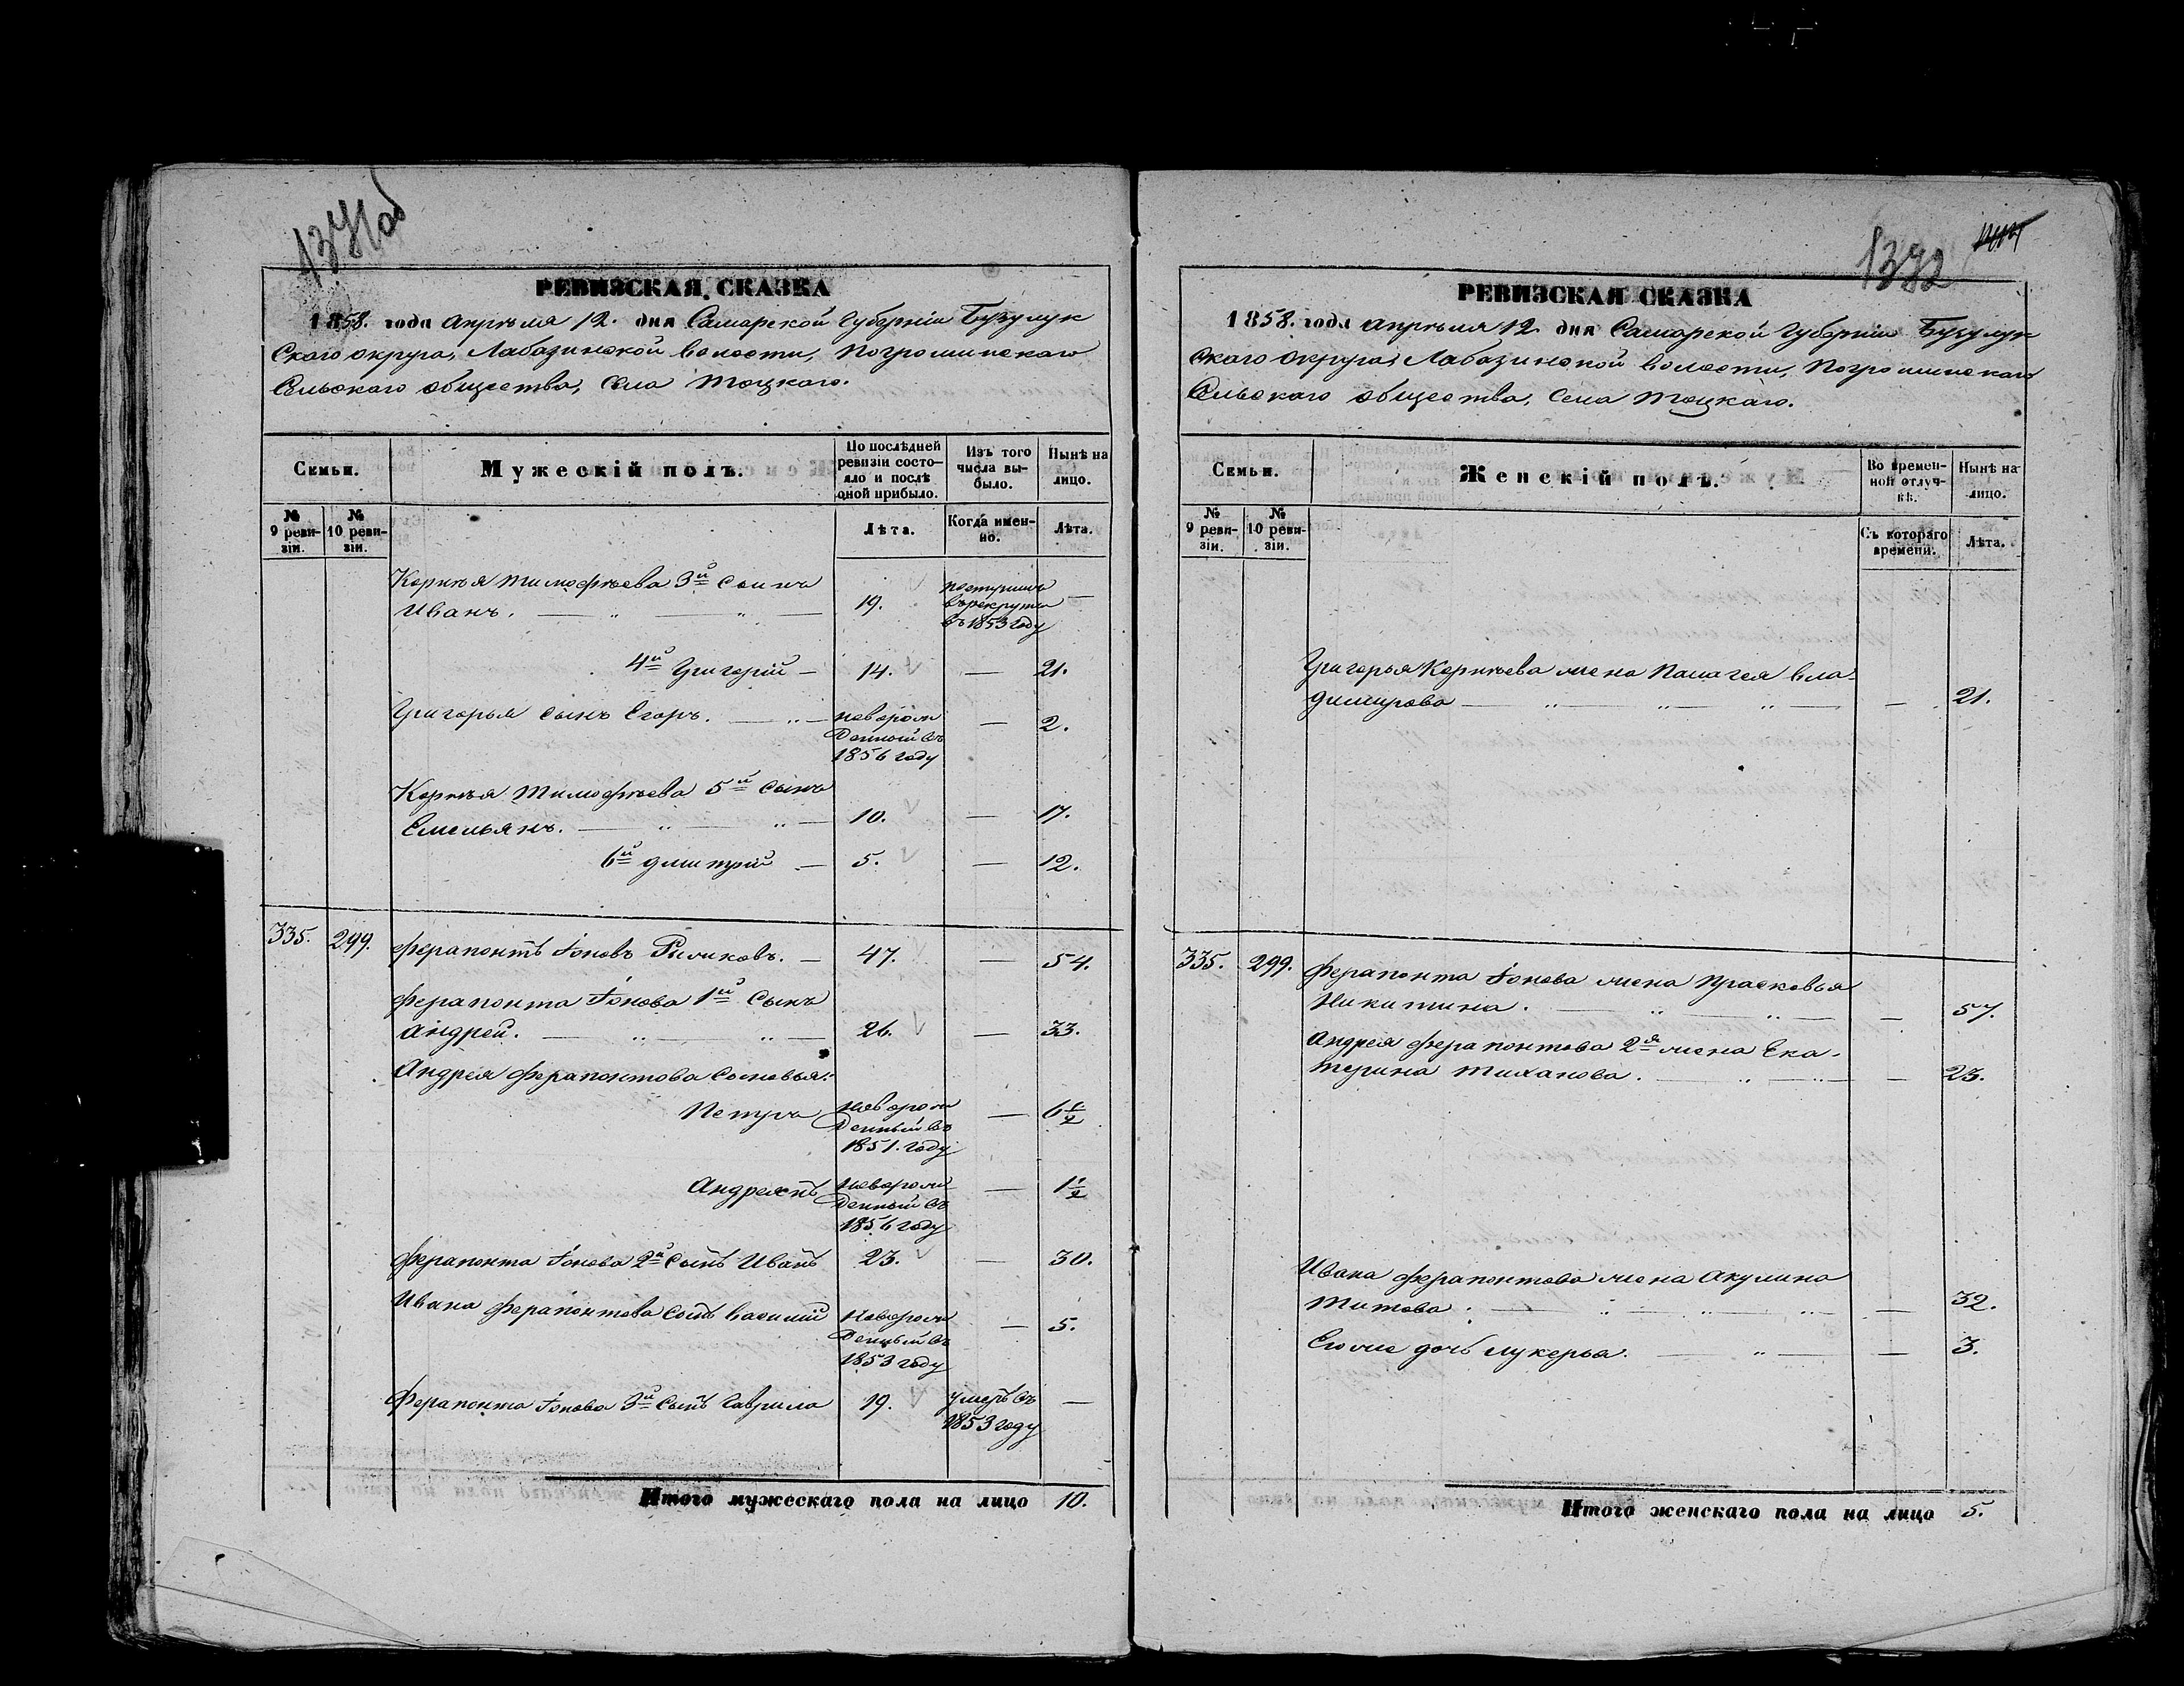 1371об
РЕВИЗСКАЯ СКАЗКА
1858. года Апрѣля 12. дня Самарской Губерніи Бузулук
скаго округа, Лабазинской волости, Погроминскаго
Сельскаго общества, Села Тоцкаго.
Семьи.
Мужескій полъ.
По послѣдней
ревизіи состо-
яло и послѣ
оной прибыло.
Изъ того
числа вы-
было.
Нынѣ на
лицо.
№
9 реви-
зіи.
№
10 реви-
зіи.
Лѣта.
Когда имен-
но.
Лѣта.
Корнѣя Тимофѣева 3й сынъ
Иванъ. 19. поступилъ
въ рекруты
въ 1853 году —
4й Григорій — 14. — 21.
Григорья сынъ Егоръ. новорож
денный въ
1856 году — 2.
Корнѣя Тимофѣева 5й сынъ
Емельянъ. 10. — 17.
6й Дмитрій — 5. — 12.
335. 299. Ферапонтъ Іоновъ — 47. — 54.
Ферапонта Іонова 1й сынъ
Андрей. 26. — 33.
Андрея Ферапонтова сыновья:
Петръ новорож
денный въ
1851. году — 6½
Андреянъ новорож
денный въ
1856 году — 1½
Ферапонта Іонова 2й сынъ Иванъ 23. — 30.
Ивана Ферапонтова сынъ Василій новорож
денный въ
1853 году — 5.
Ферапонта Іонова 3й сынъ Гаврила 19. умеръ въ
1853 году —
Итого мужескаго пола на лицо 10.
1372
РЕВИЗСКАЯ СКАЗКА
1858. года Апрѣля 12 дня Самарской Губерніи Бузулук
скаго округа, Лабазинской волости, Погроминскаго
Сельскаго общества, Села Тоцкаго.
Семьи.
Женскій полъ.
Во времен-
ной отлуч-
кѣ.
Нынѣ на
лицо.
№
9 реви-
зіи.
№
10 реви-
зіи.
Съ котораго
времени.
Лѣта.
Григорья Корнѣева жена Палагея Вла-
димирова — 21.
335. 299. Ферапонта Іонова жена Прасковья
Никитина. — 57.
Андрея Ферапонтова 2я жена Ека-
терина Тиханова. — 23.
Ивана Ферапонтова жена Акулина
Титова. — 32.
Его же дочь Лукерья. — 3.
Итого женскаго пола на лицо 5.